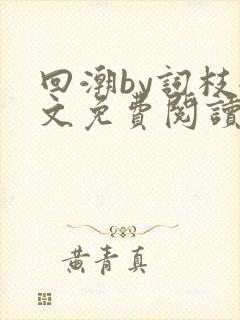 回潮by詞枝
文免費閱讀
黄青真